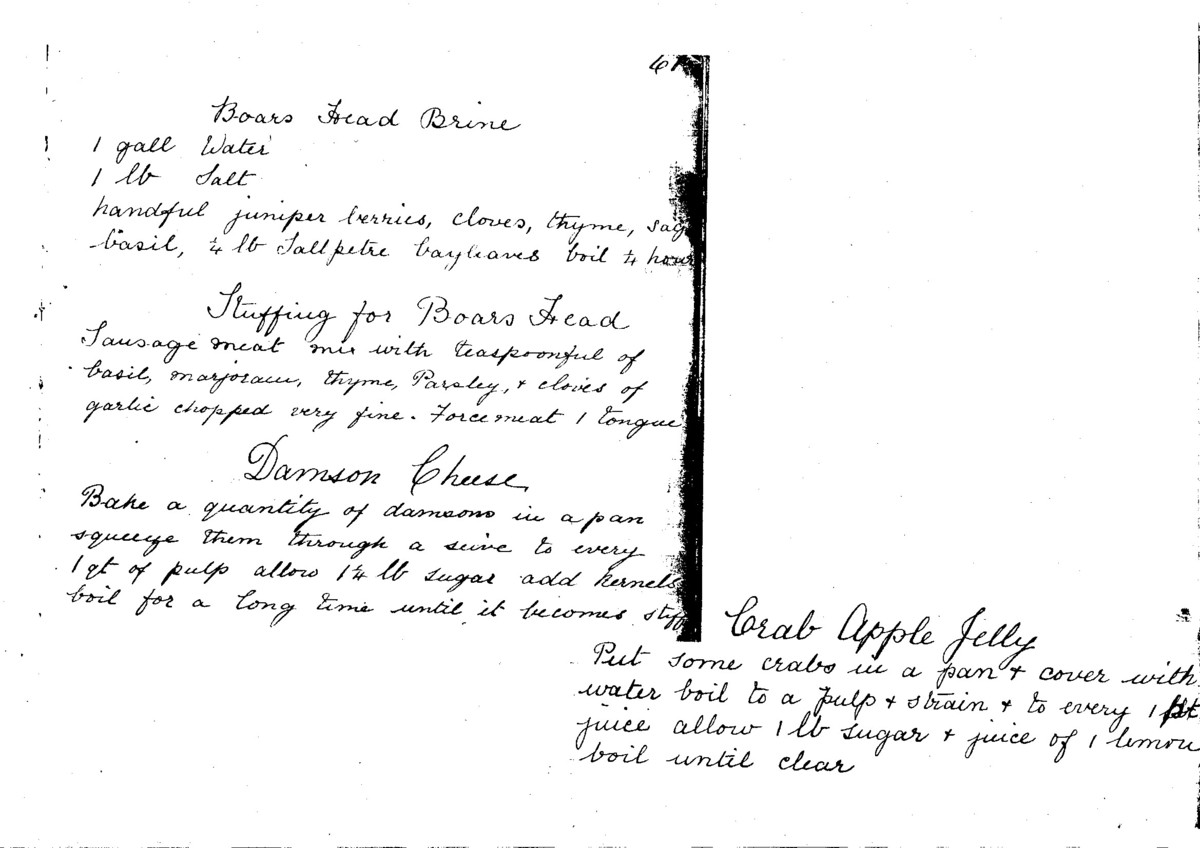 61
Boars Head Brine
1 gall Water
1 lb Salt
handful juniper berries, cloves, thyme, sag
basil, ¼ lb Saltpetre bayleaves boil ¼ hour
Stuffing for Boars Head
Sausage meat mix with teaspoonful of
basil, marjoram, thyme, Parsley, + cloves of
garlic chopped very fine. Forcemeat 1 tongue
Damson Cheese
Bake a quantity of damsons in a pan
squeeze them through a seive to every
1 qt of pulp allow 1¼ lb sugar add kernels
boil for a long time until it becomes stiff
Crab Apple Jelly
Put some crabs in a pan + cover with
water boil to a pulp + strain + to every 1 pt
juice allow 1 lb sugar + juice of 1 lemon
boil until clear